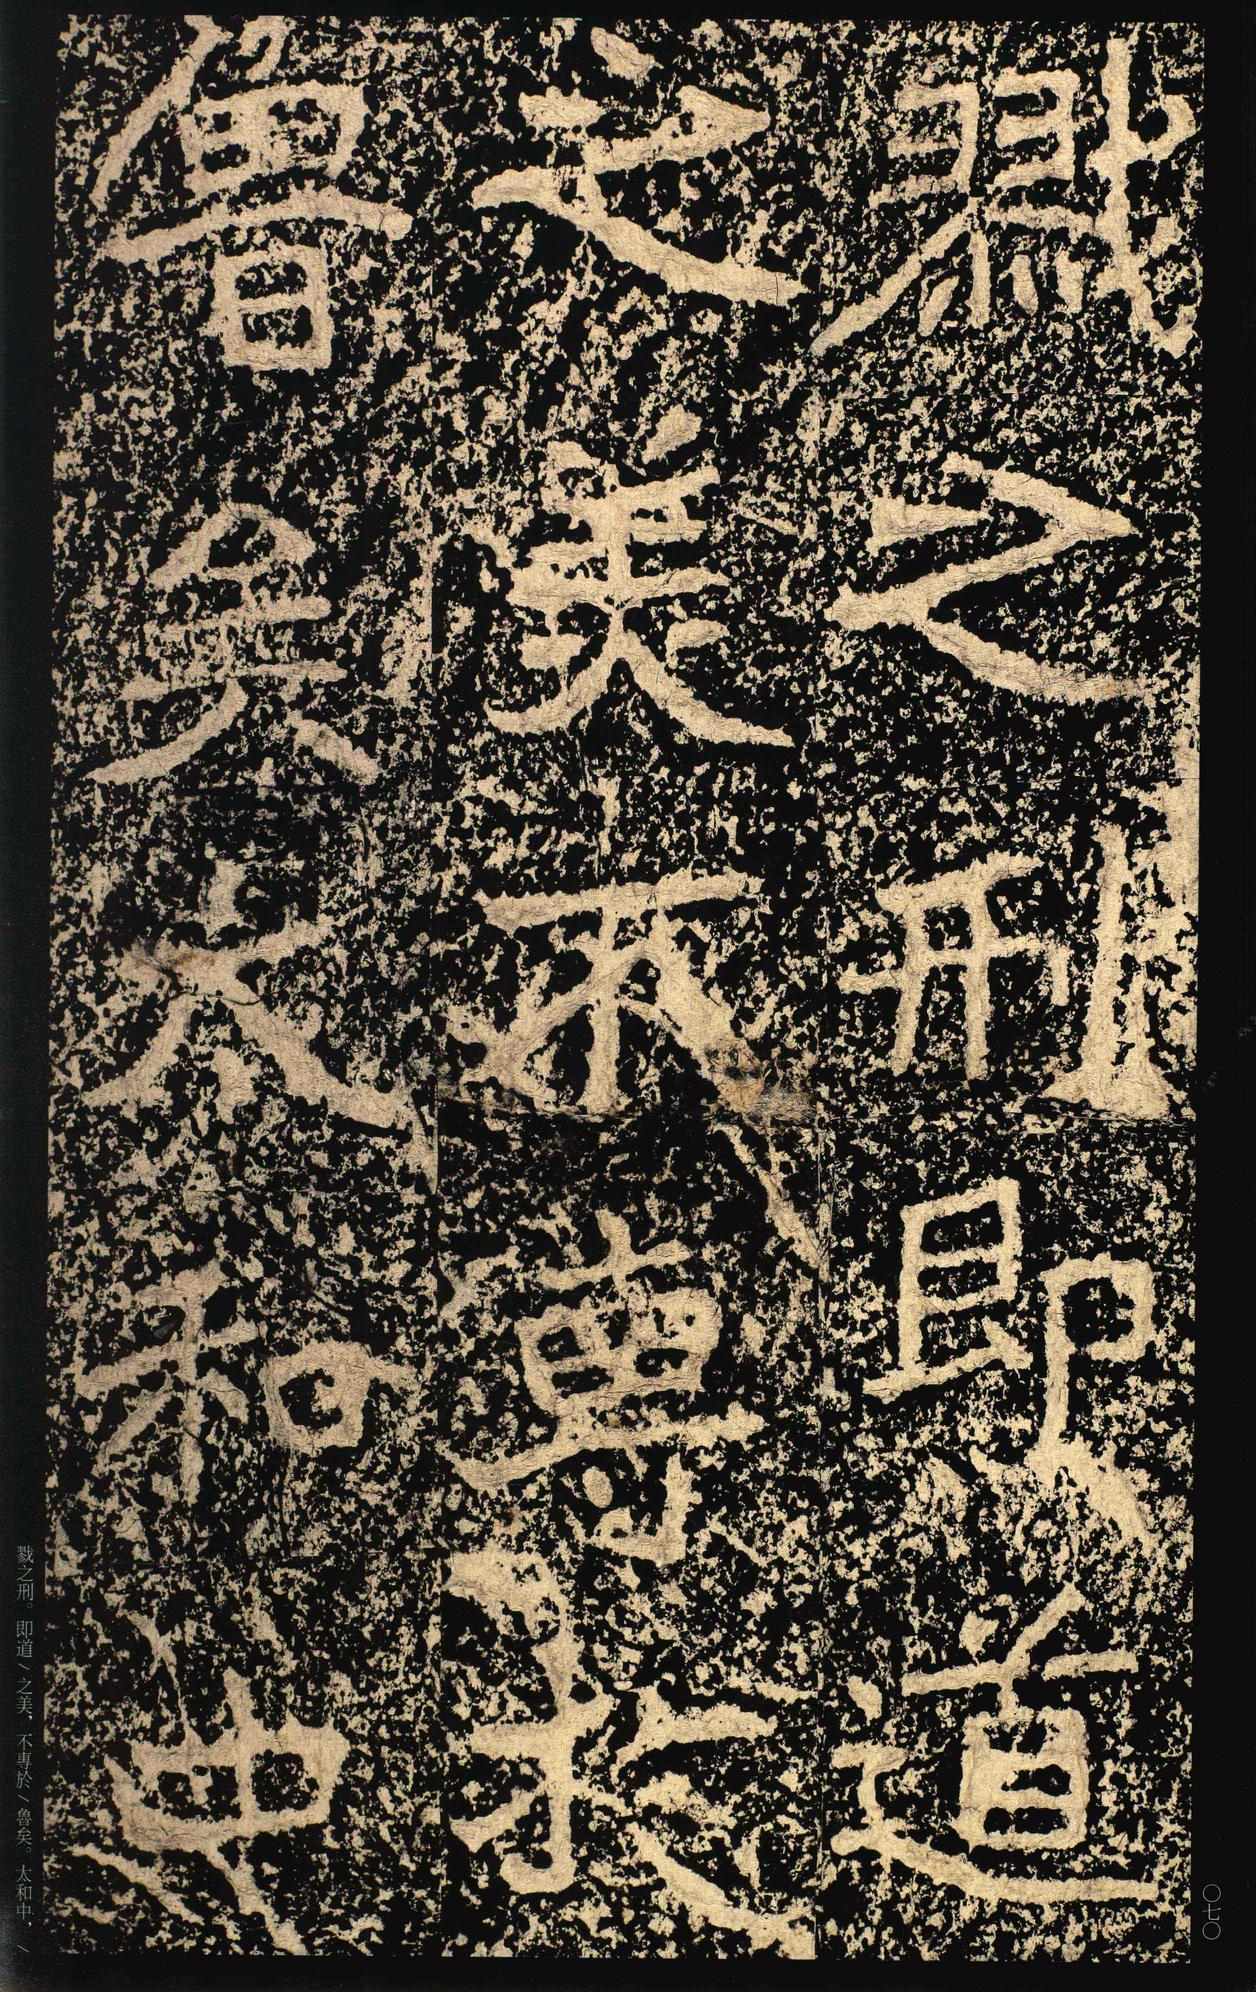 戮之刑即道
之美不專於
魯矣太和中
戮之刑。即道\之美、不專於\魯矣。太和中，\
〇七〇